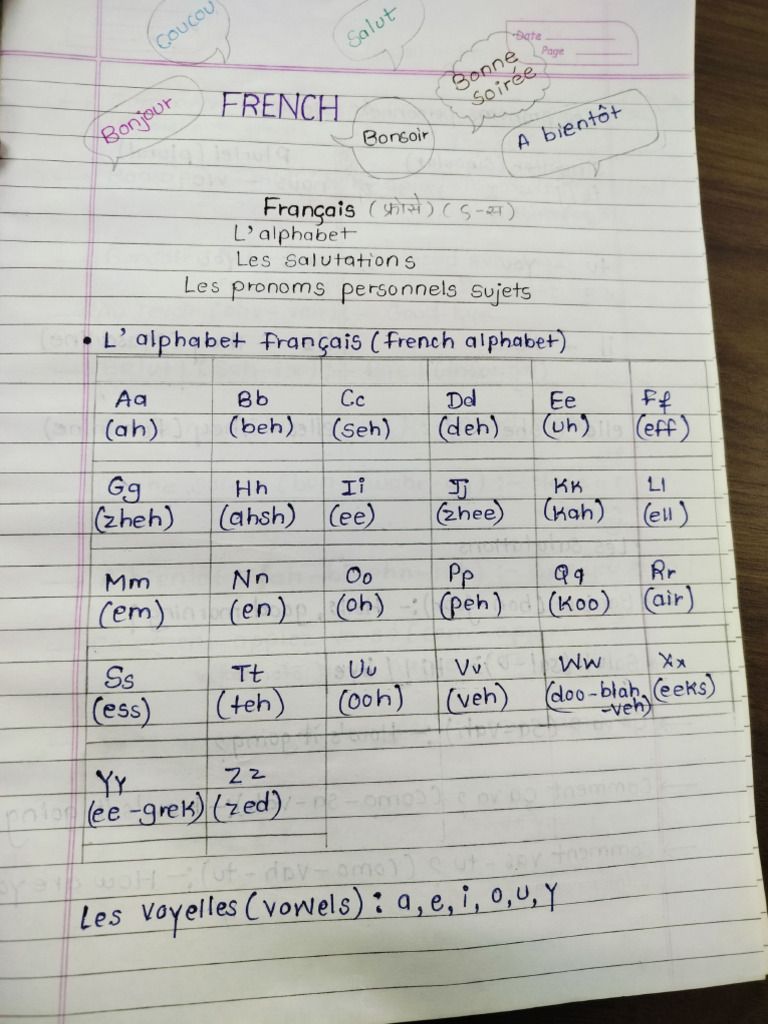 Coucou
Salut
Date
Page
Bonne
soirée
Bonjour
FRENCH
Bonsoir
A bientôt
Français (फ्रांसे) (ç-स)
L'alphabet
Les salutations
Les pronoms personnels sujets
• L'alphabet français (french alphabet)
Aa Bb Cc Dd Ee Ff
(ah) (beh) (seh) (deh) (uh) (eff)
Gg Hh Ii Jj Kk Ll
(zheh) (ahsh) (ee) (zhee) (kah) (ell)
Mm Nn Oo Pp Qq Rr
(em) (en) (oh) (peh) (koo) (air)
Ss Tt Uu Vv Ww Xx
(ess) (teh) (ooh) (veh) (doo-blah (eeks)
-veh)
Yy Zz
(ee-grek) (zed)
Les voyelles (vowels) : a, e, i, o, u, y